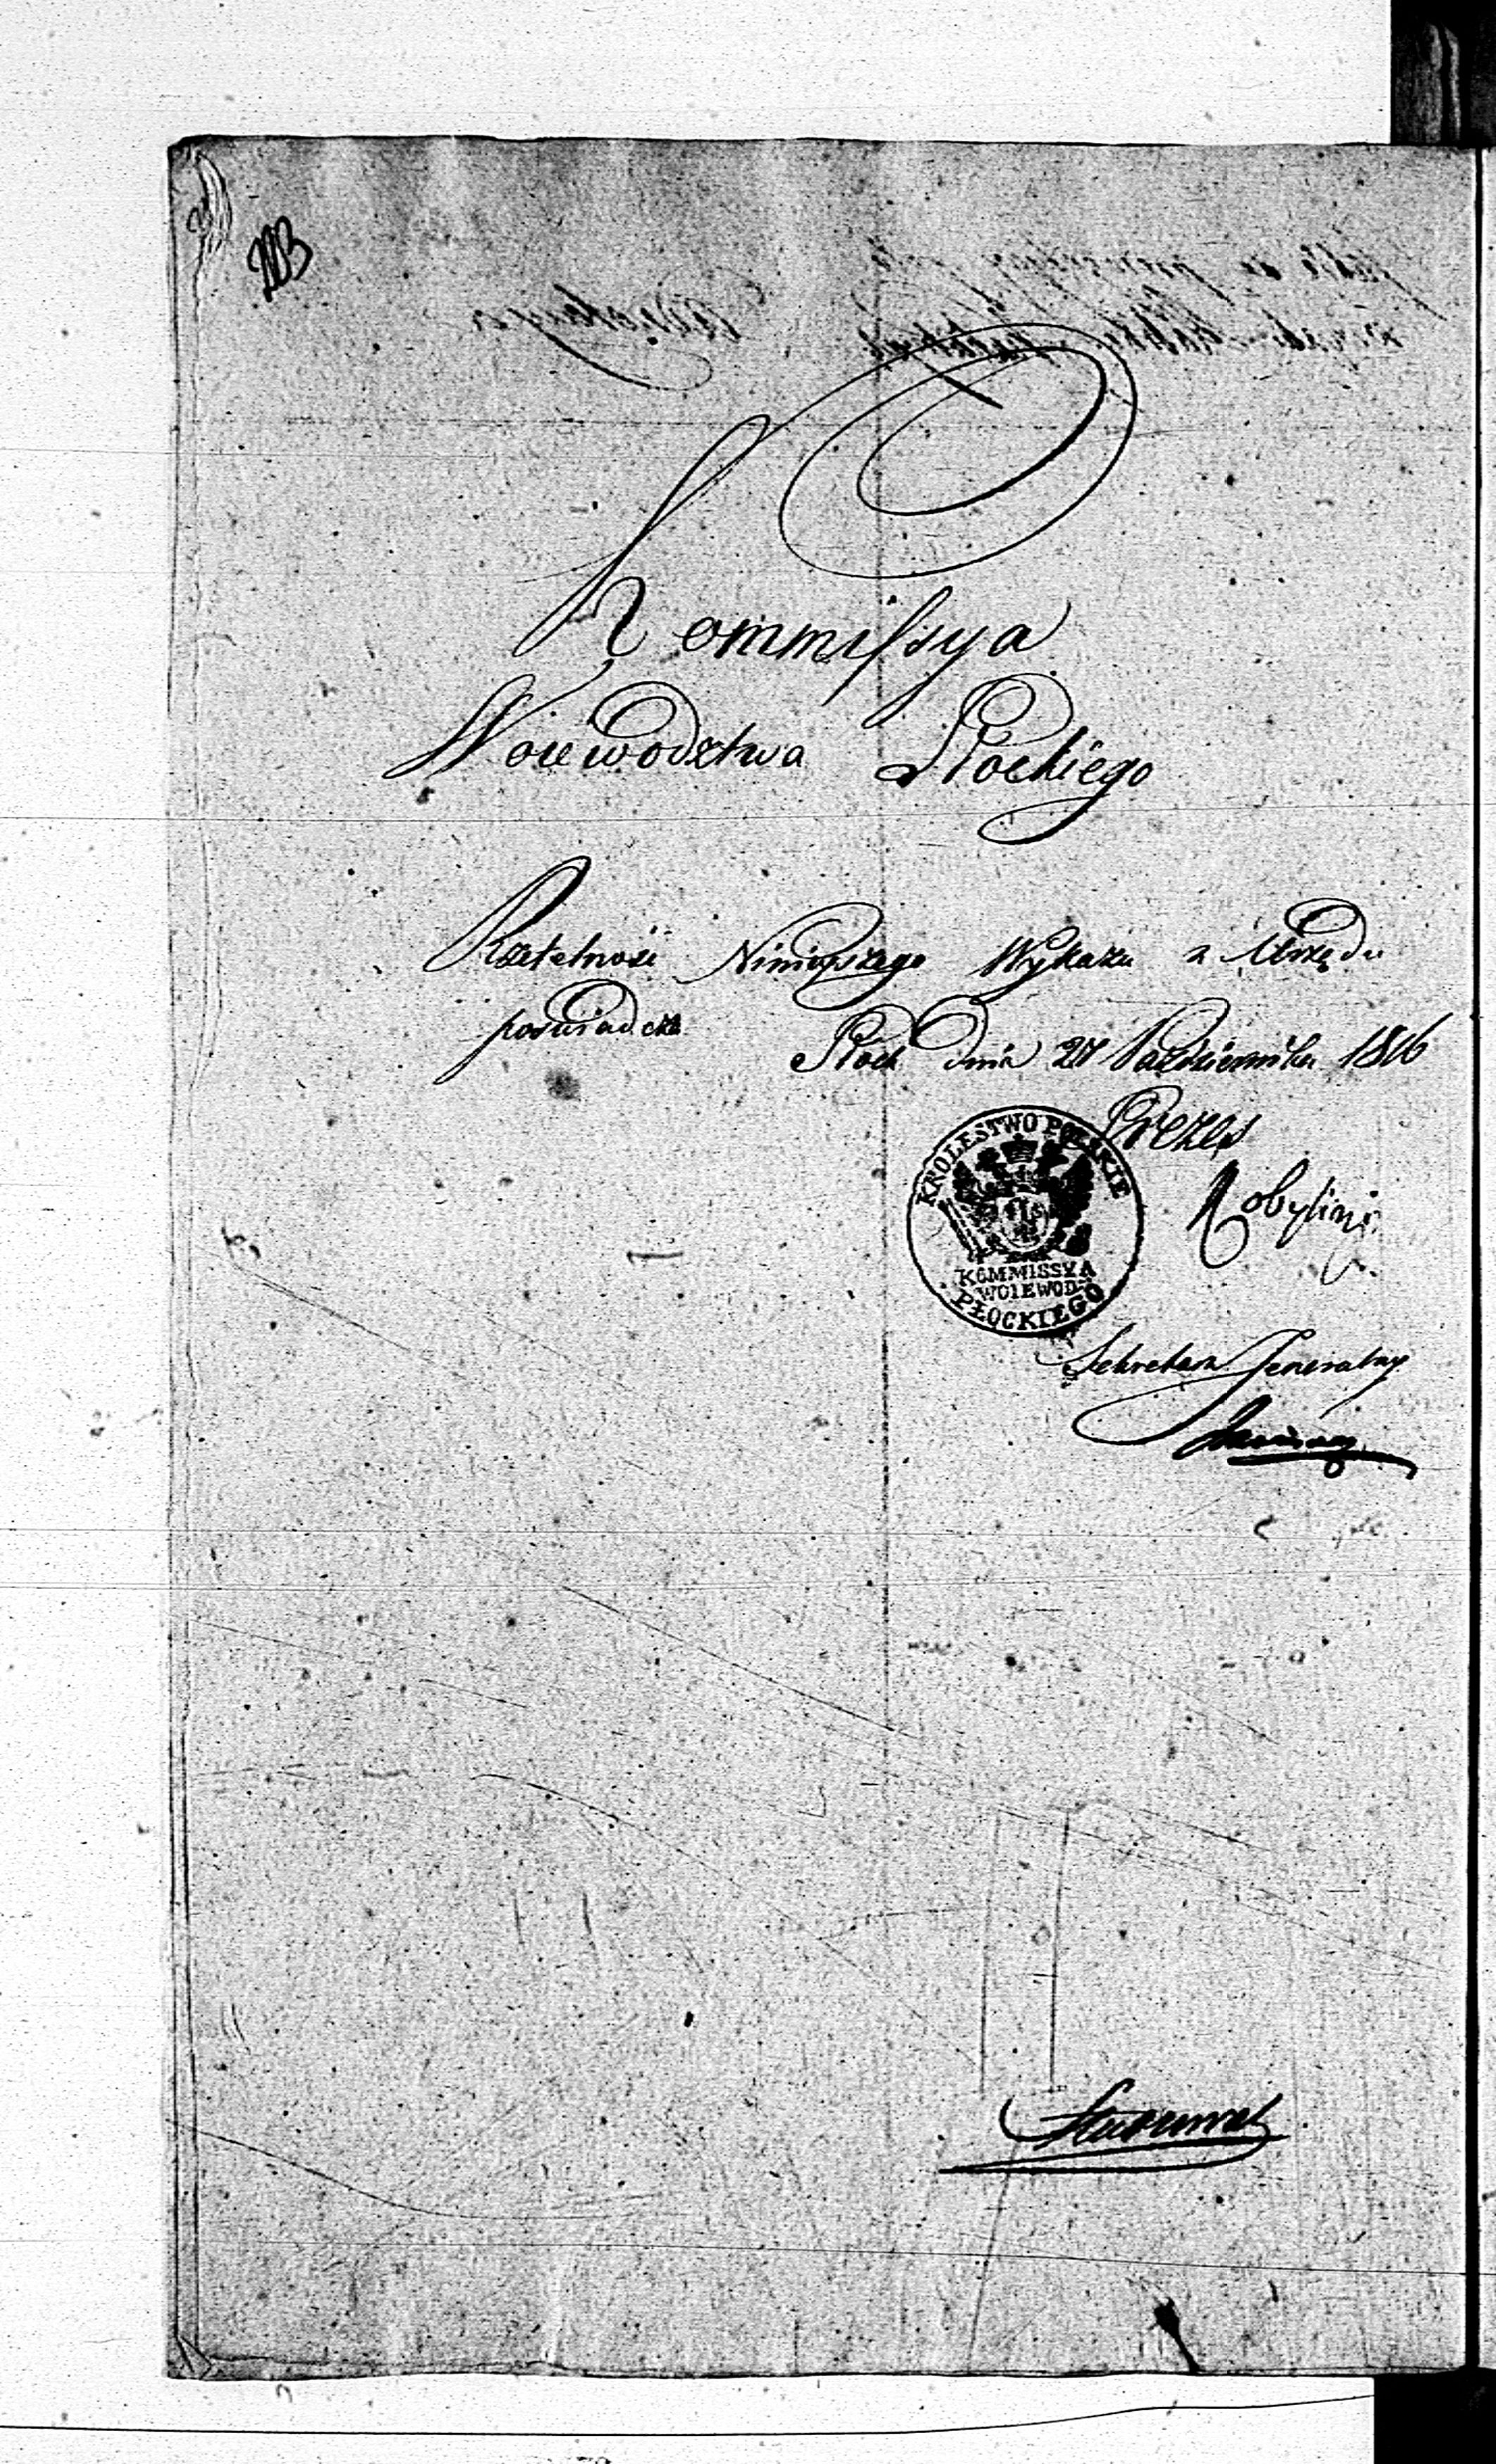 Kommissya
Woiewodztwa Płockiego
Rzetelność Ninieyszego Wykazu z Urzędu
poswiadcza
Płock dnia 27 Pazdziernika 1816
Prezes
Kobyliński
KROLESTWO POLSKIE
KOMMISSYA
WOIEWOD:
PŁOCKIEGO
Sekretarz Jeneralny